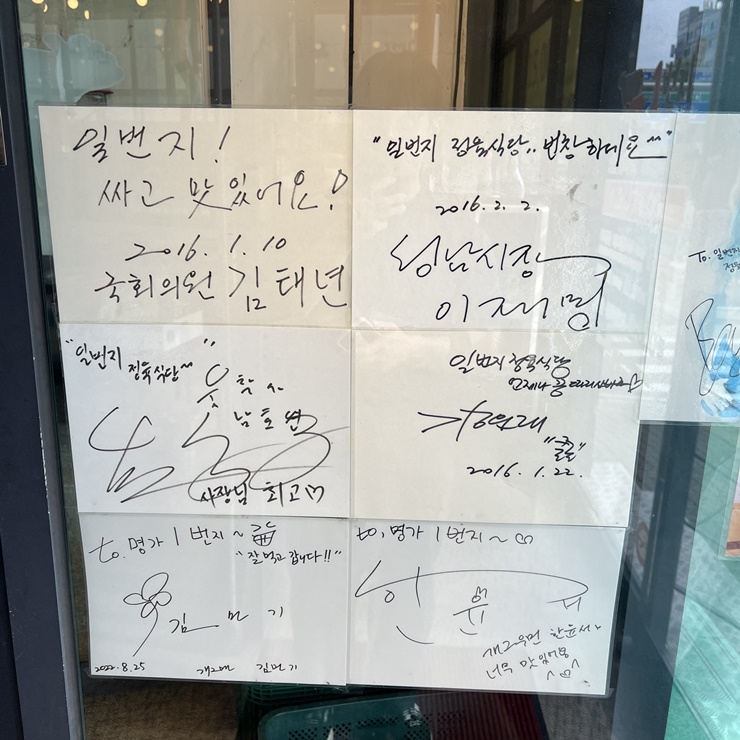 일번지!
싸고 맛있어요!
2016. 1. 10
국회의원 김태년
"일번지 정육식당.. 번창하데요~"
2016. 2. 2.
성남시장
이재명
To. 일번지
"일번지 정육식당~"
웃찾사
남호연
사장님 최고♡
일번지 정육식당
언제나
2016. 1. 22.
to. 명가 1번지~
"잘먹고 갑니다!!"
김민기
2022. 8. 25 개그맨 김민기
to. 명가 1번지~
한윤서
개그우먼 한윤서
너무 맛있어용